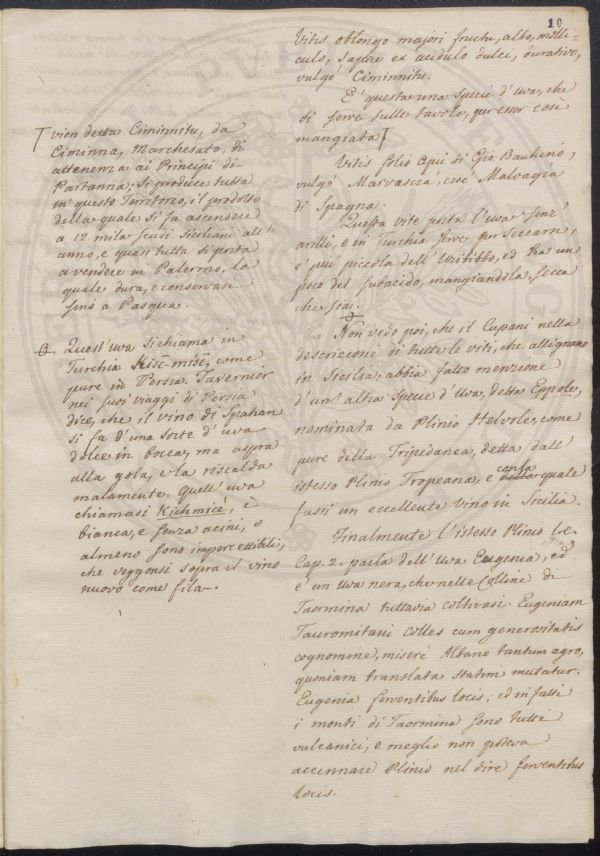 10
Vitis oblongo majori fructu, albo, molli=
culo, sapore ex acidulo dulci, durativo,
vulgò Ciminnitu.
E' questa una specie d'uva, che
si serve sulle tavole, per esser così
mangiata
Vitis folio Apii di Gio. Bauhino,
vulgò Marvascia, cioè Malvagia
di Spagna.
Questa vite porta l'uva senz'
arilli, e in Turchia serve per seccarsi,
è più piccola dell'Insibibo, ed ha un
poco del subacido, mangiandola secca
che sia.
Non vedo poi, che il Cupani nella
descrizione di tutte le viti, che allignano
in Sicilia, abbia fatto menzione
d'un'altra specie d'Uva, detta Eppole,
nominata da Plinio Helvole, come
pure della Tripedanea, detta dall'
istesso Plinio Tropeana, e della conla quale
fassi un eccellente vino in Sicilia.
Finalmente l'istesso Plinio l.c.
Cap. 2. parla dell'Uva Eugenia, ed
è un Uva nera, che nelle Colline di
Taormina tuttavia coltivasi. Eugeniam
Tauromitani colles cum generositatis
cognomine, miserè Albano tantum agro,
quoniam translata statim mutatur.
Eugenia ferventibus locis; ed in fatti
i monti di Taormina sono tutti
vulcanici, e meglio non poteva
accennare Plinio nel dire ferventibus
locis.
vien detta Ciminnitu, da
Ciminna, Marchesato, di
attenenza ai Principi di
Partanna; si produce tutta
in questo Territorio, il prodotto
della quale si fa ascendere
a 12. mila scudi Siciliani all'
anno, e quasi tutta si porta
a vendere in Palermo, la
quale dura, e conservasi
sino a Pasqua.
Quest'uva si chiama in
Turchia Kisc-misc, come
pure in Persia. Tavernier
nei suoi viaggi di Persia
dice, che il vino di Spahan
si fa d'una sorte d'uva
dolce in bocca, ma aspra
alla gola, e la riscalda
malamente. Quell'uva
chiamasi Kichmicè, è
bianca, e senza acini, o
almeno sono impercettibili,
che veggonsi sopra il vino
nuovo come fila.